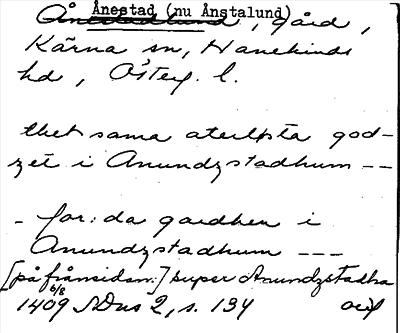 Ånestad (nu Ånstalund)
Ånestadlund, gård,
Kärna sn, Hanekinds
hd, Österg. l.
thet sama aterlösta god-
zet i Anundzstadhum --
- for:da gardhen i
Anundzstadhum ---
[på frånsidan:] super Anundzstadha
1409 6/8 SDns 2, s. 134 orig